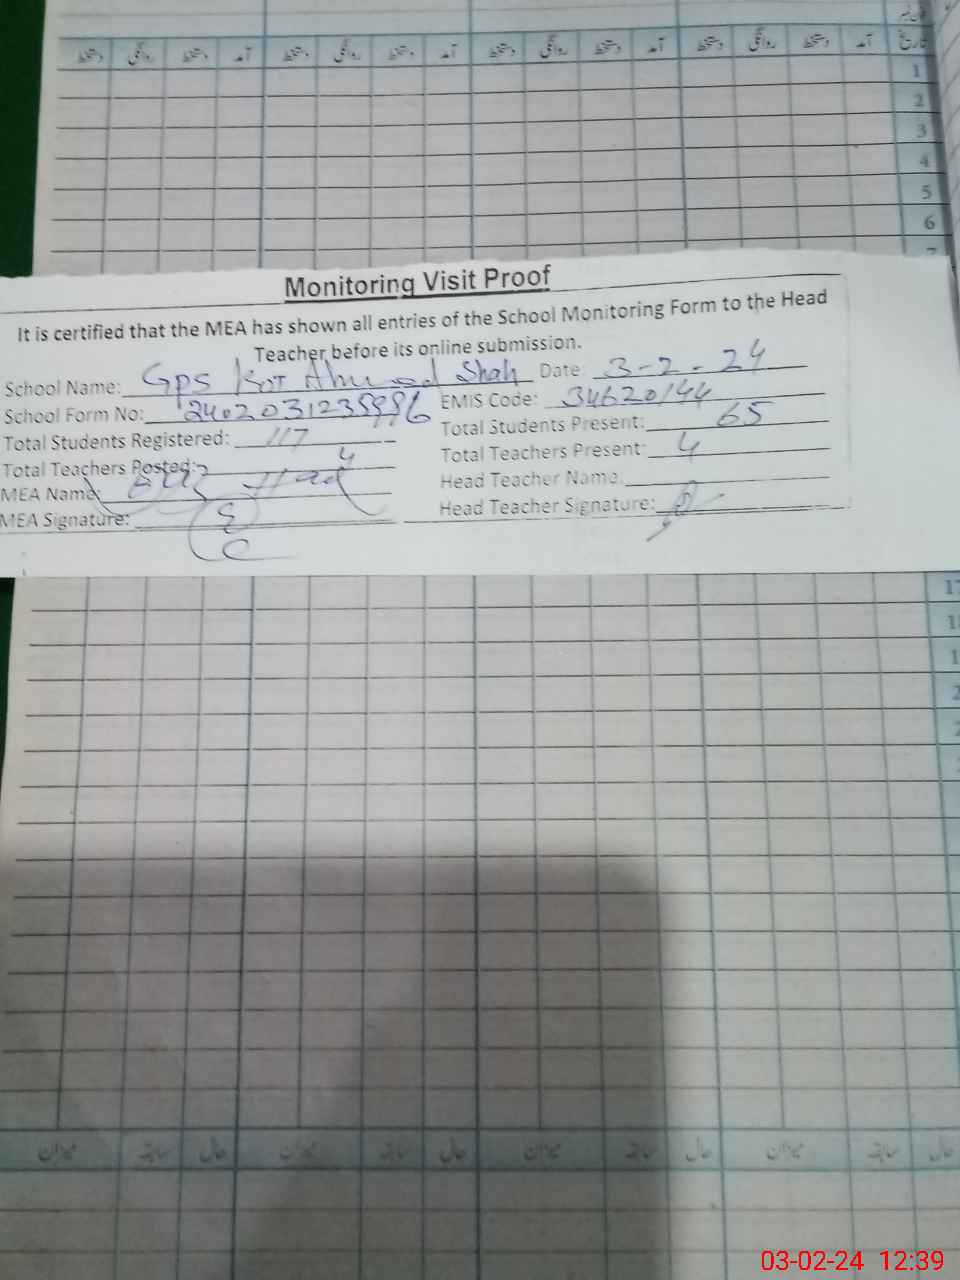 تاریخ آمد دستخط روانگی دستخط آمد دستخط روانگی دستخط آمد دستخط روانگی دستخط آمد دستخط روانگی دستخط
1
2
3
4
5
6
7
Monitoring Visit Proof
It is certified that the MEA has shown all entries of the School Monitoring Form to the Head
Teacher before its online submission.
School Name: GPS Kot Ahmad Shah Date: 3-2-24
School Form No: 2402031235996 EMIS Code: 34620144
Total Students Registered: 117 Total Students Present: 65
Total Teachers Posted: 4 Total Teachers Present: 4
MEA Name: Head Teacher Name:
MEA Signature: Head Teacher Signature:
17
میزان سابقہ حال میزان سابقہ حال میزان سابقہ حال میزان سابقہ حال
03-02-24 12:39